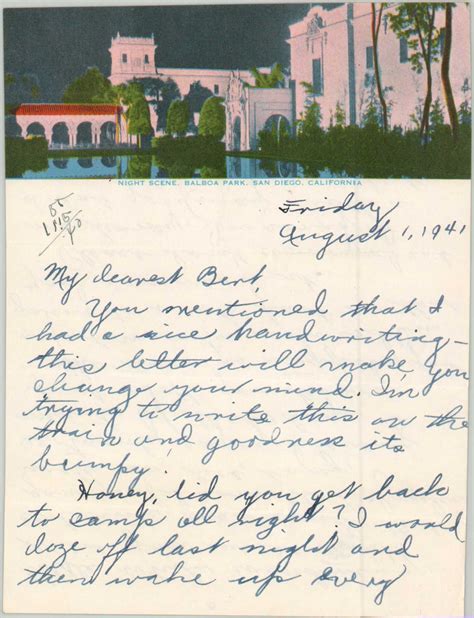 NIGHT SCENE, BALBOA PARK, SAN DIEGO, CALIFORNIA
Friday
August 1, 1941
My dearest Bert,
You mentioned that I
had a nice handwriting –
this letter will make you
change your mind. I'm
trying to write this on the
train and goodness its
bumpy!
Honey, did you get back
to camp all right? I would
doze off last night and
then wake up every